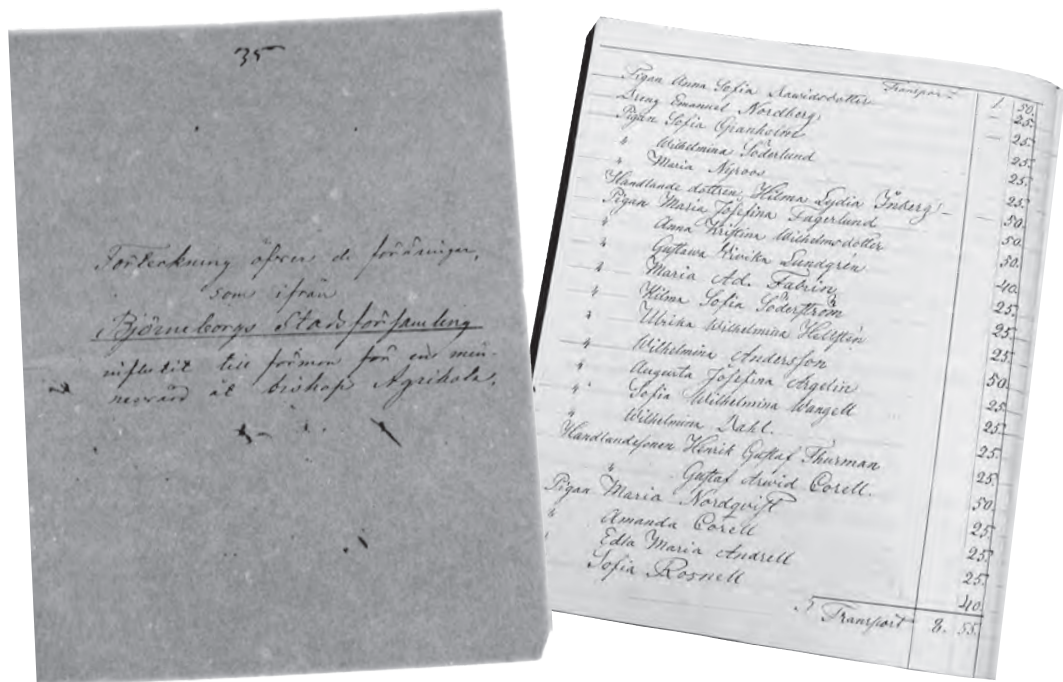 35
Förteckning öfver de föräringar,
som ifrån
Björneborgs Stadsförsamling
influtit till förmon för en min-
nesvård åt biskop Agrikola.
Transport 1. 50.
Pigan Anna Sofia Dawidsdotter — 25.
Dreng Emanuel Nordberg — 25.
Pigan Sofia Granholm — 25.
" Wilhelmina Söderlund 25.
" Maria Nyroos 25.
Handlande dottren Hilma Lydia Inberg — 50.
Pigan Maria Josefina Fagerlund 50.
" Anna Kristina Wilhelmsdotter 50.
" Gustawa Wivika Lundgrén 40.
" Maria Ad. Fabrin 25.
" Hilma Sofia Söderström 25.
" Ulrika Wilhelmina Hellstén 25.
" Wilhelmina Andersson 50.
" Augusta Josefina Argelin 25.
" Sofia Wilhelmina Wangell 25.
" Wilhelmina Dahl. 25.
Handlandesonen Henrik Gustaf Thurman 25.
" Gustaf Arwid Corell. 50.
Pigan Maria Nordqvist 25.
" Amanda Corell 25.
" Edla Maria Andrell 25.
" Sofia Rosnell 40.
Transport 8. 55.